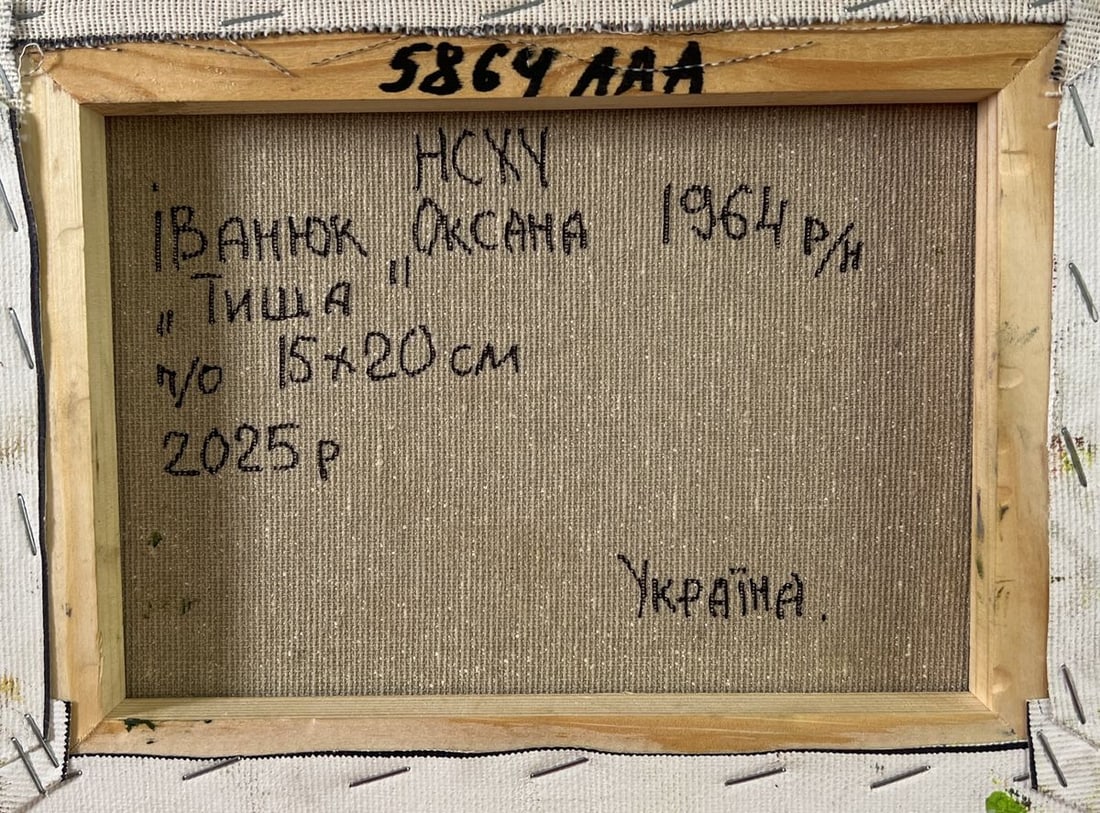 5864 ААА
НСХУ
Іванюк Оксана 1964 р/н
„Тиша"
п/о 15х20 см
2025 р
Україна.